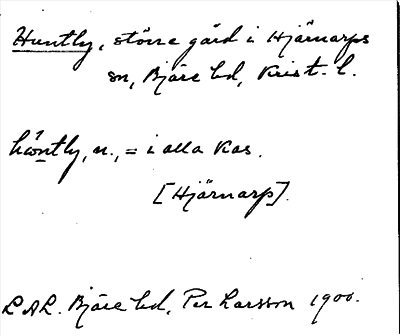 Huntly, större gård i Hjärnarps
sn, Bjäre hd, Krist. l.
hẃntly, n., = i alla kas.
[Hjärnarp].
LAL. Bjäre hd, Per Larsson 1900.